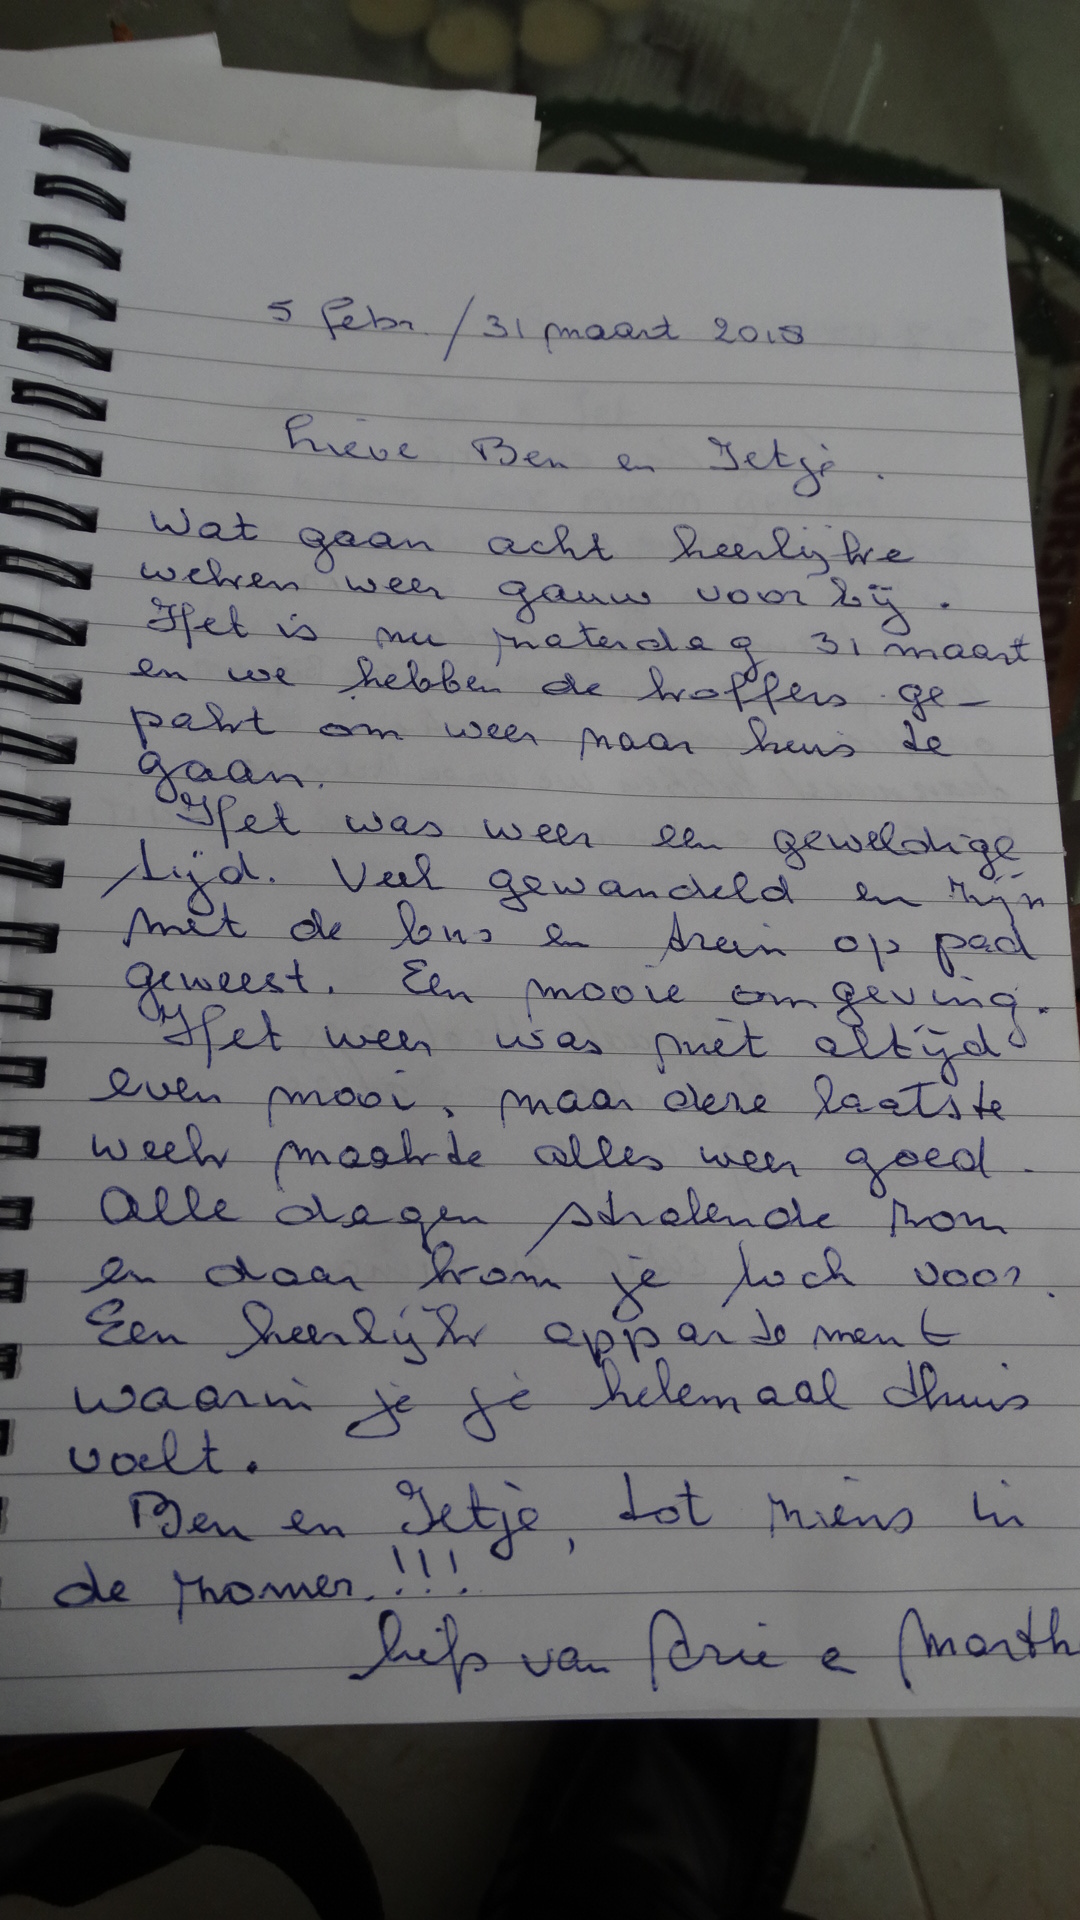 5 febr. / 31 maart 2018
Lieve Ben en Jetje.
Wat gaan acht heerlijke
weken weer gauw voorbij.
Het is nu zaterdag 31 maart
en we hebben de koffers ge-
pakt om weer naar huis te
gaan.
Het was weer een geweldige
tijd. Veel gewandeld en zijn
met de bus en trein op pad
geweest. Een mooie omgeving.
Het weer was niet altijd
even mooi, maar deze laatste
week maakte alles weer goed.
Alle dagen stralende zon
en daar kom je toch voor.
Een heerlijk appartement
waarin je je helemaal thuis
voelt.
Ben en Jetje, tot ziens in
de zomer.!!!
liefs van Arie e Marth